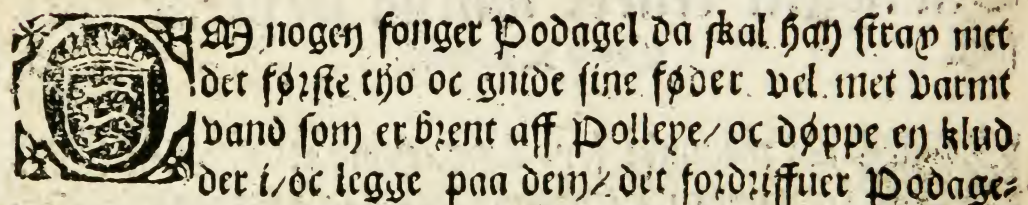 OM nogen fonger Podagel da skal han strax met
det første tho oc gnide sine føder vel met varmt
vand som er brent aff Polleye/ oc døppe en klud
der i/ oc legge paa dem/ det fordriffuer Podage⸗